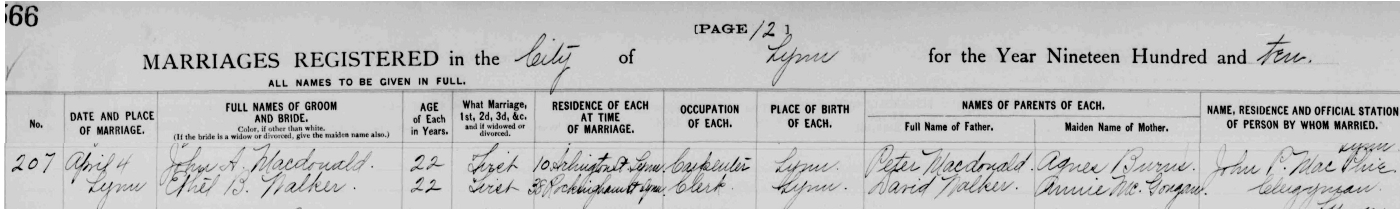 566
[PAGE 12]
MARRIAGES REGISTERED in the City of Lynn for the Year Nineteen Hundred and ten.
ALL NAMES TO BE GIVEN IN FULL.
No.
DATE AND PLACE
OF MARRIAGE.
FULL NAMES OF GROOM
AND BRIDE.
Color, if other than white.
(If the bride is a widow or divorced, give the maiden name also.)
AGE
of Each
in Years.
What Marriage,
1st, 2d, 3d, &c.
and if widowed or
divorced.
RESIDENCE OF EACH
AT TIME
OF MARRIAGE.
OCCUPATION
OF EACH.
PLACE OF BIRTH
OF EACH.
NAMES OF PARENTS OF EACH.
Full Name of Father.
Maiden Name of Mother.
NAME, RESIDENCE AND OFFICIAL STATION
OF PERSON BY WHOM MARRIED.
Lynn
207 April 4 John A. Macdonald. 22 First 10 St Lynn Carpenter Lynn. Peter Macdonald. Agnes Burns. John P. Mac
Lynn Ethel B. Walker. 22 First 38 Rockingham St Lynn Clerk. Lynn. David Walker. Annie Mc. Clergyman.